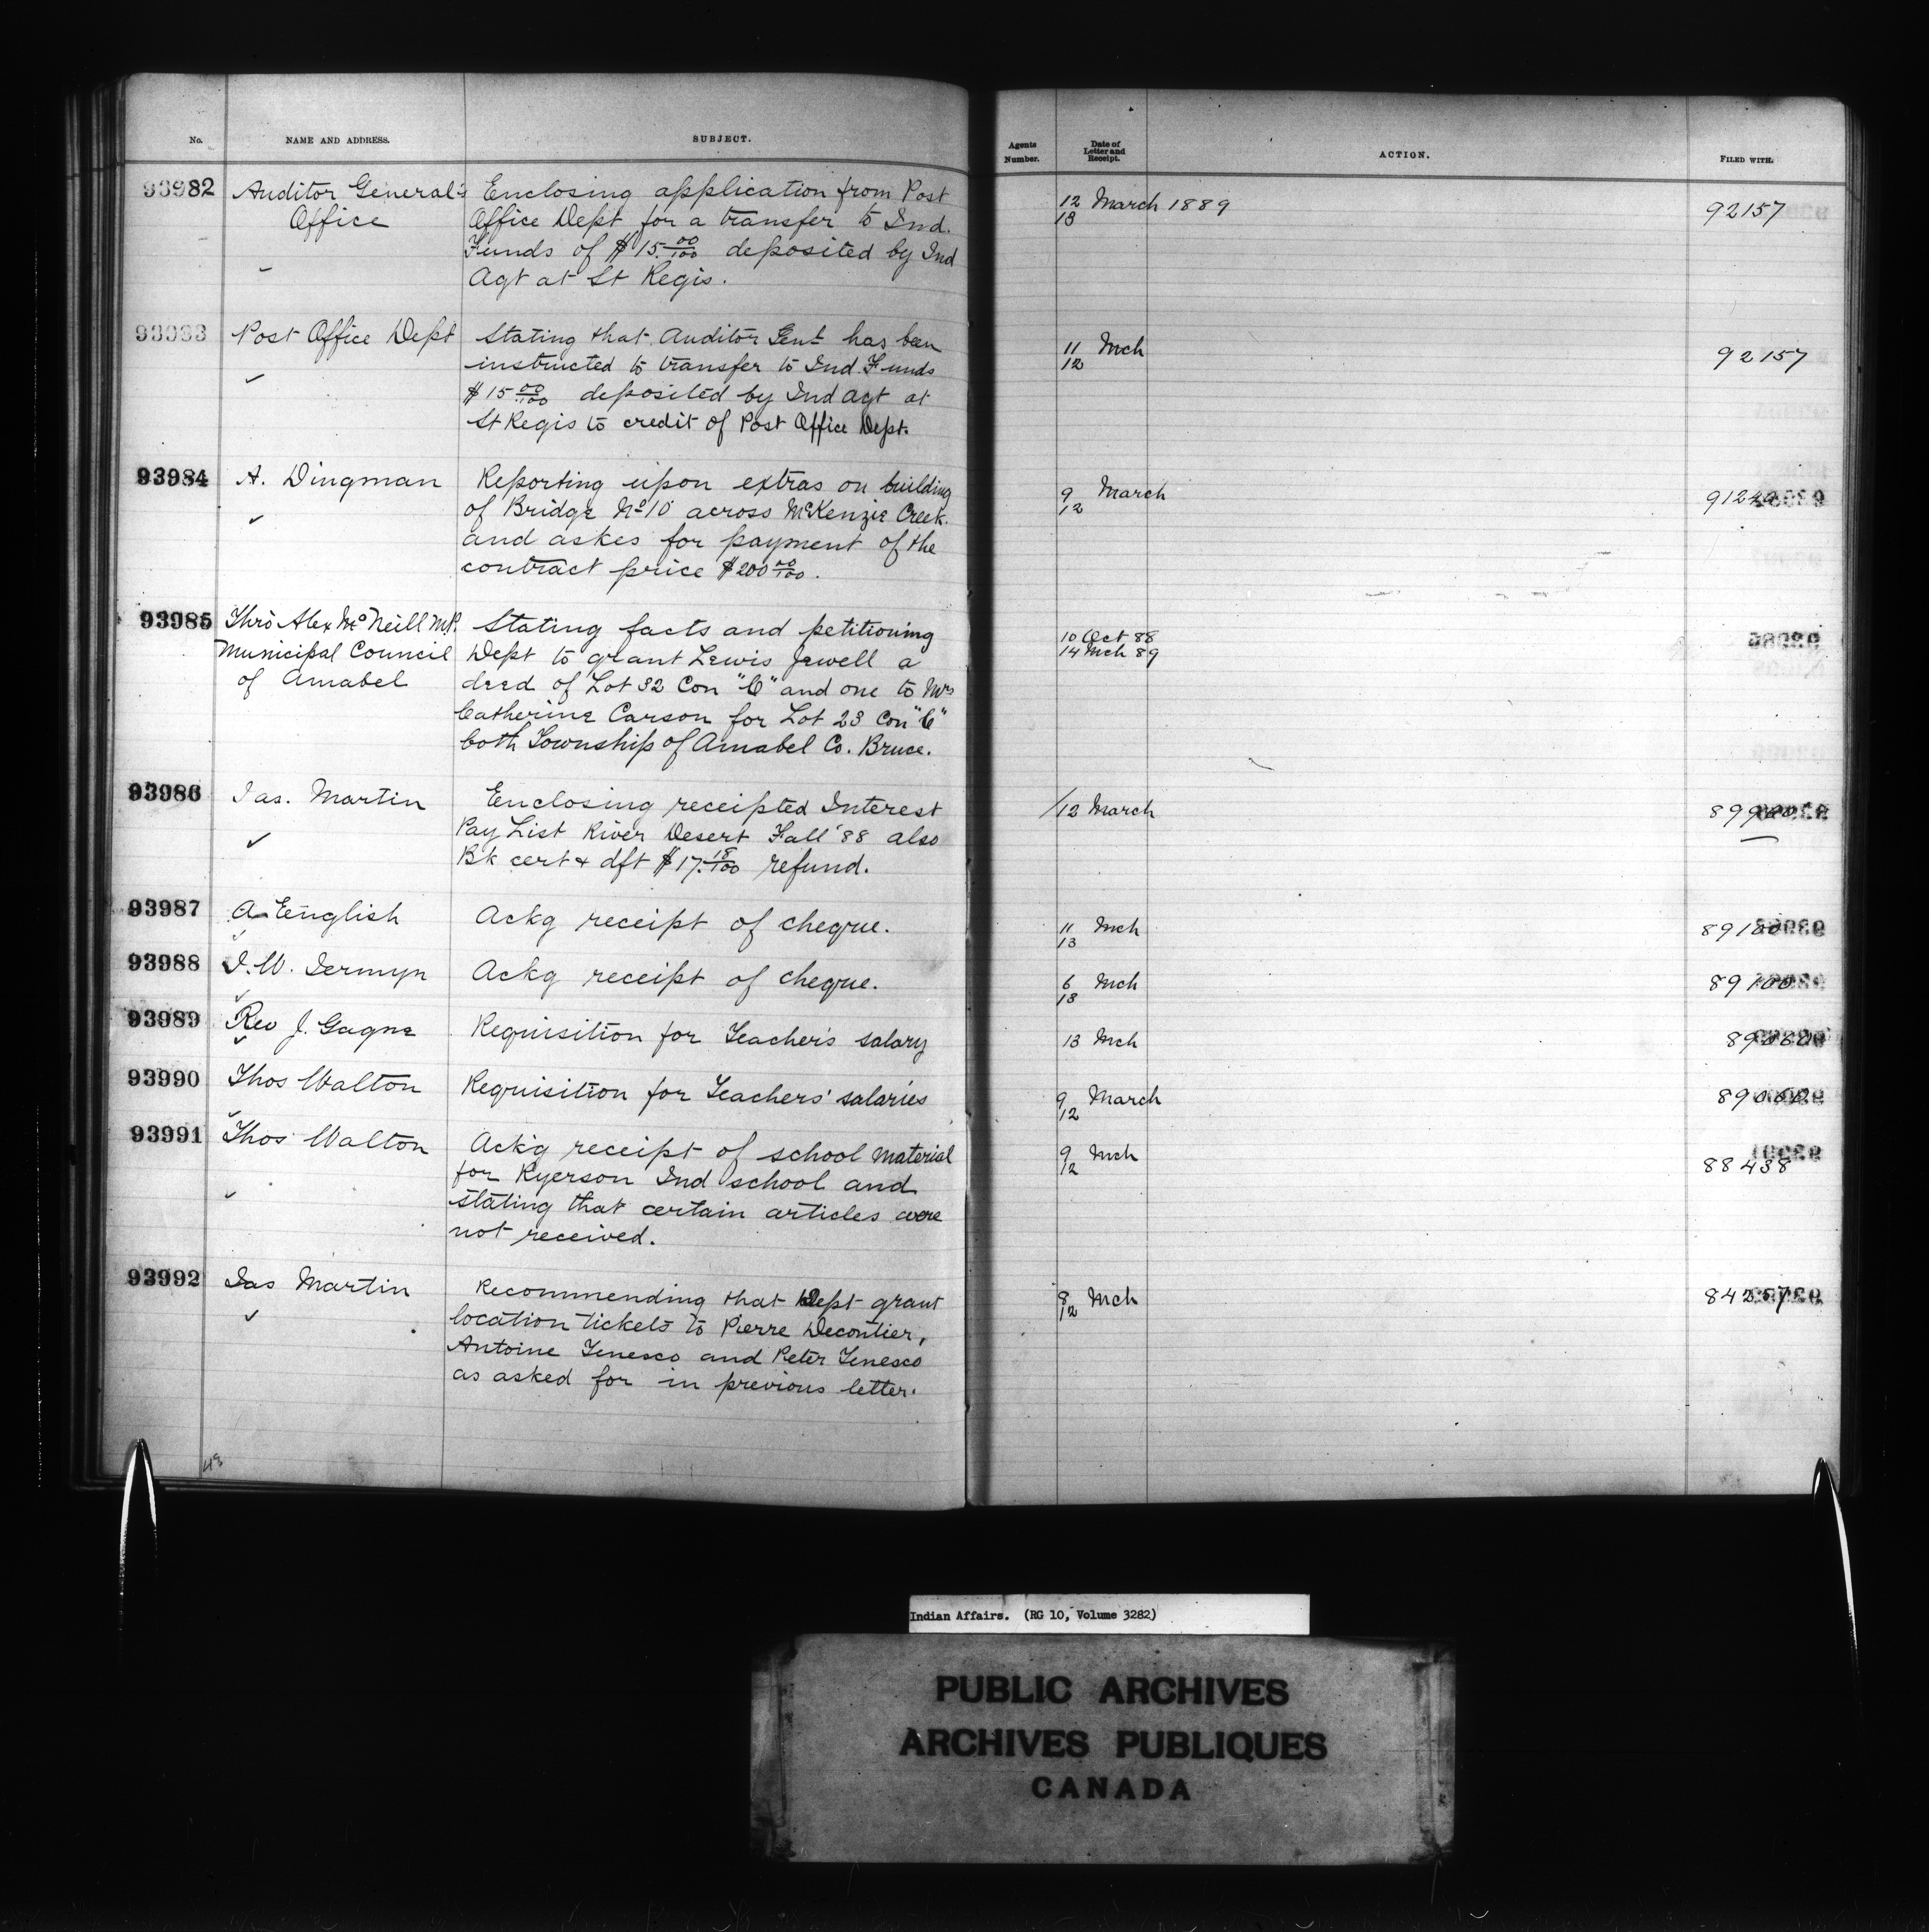 No. NAME AND ADDRESS. SUBJECT. Agents Number. Date of Letter and Receipt. ACTION. FILED WITH.
93982 Auditor General's Enclosing application from Post 12 March 1889 92157
Office Office Dept for a transfer to Ind. 13
Funds of $15.00/100 deposited by Ind
Agt at St Regis.
93983 Post Office Dept Stating that Auditor Genl has been 11 Mch 92157
instructed to transfer to Ind. Funds 12
$15 00/100 deposited by Ind agt at
St Regis to credit of Post Office Dept.
93984 A. Dingman Reporting upon extras on building 9 March
of Bridge No 10 across McKenzie Creek. 12
and askes for payment of the
contract price $200 00/100.
93985 Thro Alex McNeill M.P. Stating facts and petitioning 10 Oct 88
Municipal Council Dept to grant Lewis Jewell a 14 Mch 89
of Amabel deed of Lot 32 Con "C" and one to Mrs
Catherine Carson for Lot 23 Con "C"
both Township of Amabel Co. Bruce.
93986 Jas. Martin Enclosing receipted Interest 12 March
Pay List River Desert Fall '88 also
Bk cert & dft $17.18/100 refund.
93987 A English Ackg receipt of cheque. 11 Mch
13
93988 J. W. Jermyn Ackg receipt of cheque. 6 Mch
13
93989 Rev J. Gagne Requisition for Teacher's salary 13 Mch
93990 Thos Walton Requisition for Teachers' salaries 9 March
12
93991 Thos Walton Ack'g receipt of school material 9 Mch 88438
for Ryerson Ind school and 12
stating that certain articles were
not received.
93992 Jas Martin Recommending that Dept grant 8 Mch
location tickets to Pierre Decontier, 12
Antoine Tenesco and Peter Tenesco
as asked for in previous letter.
Indian Affairs. (RG 10, Volume 3282)
PUBLIC ARCHIVES
ARCHIVES PUBLIQUES
CANADA